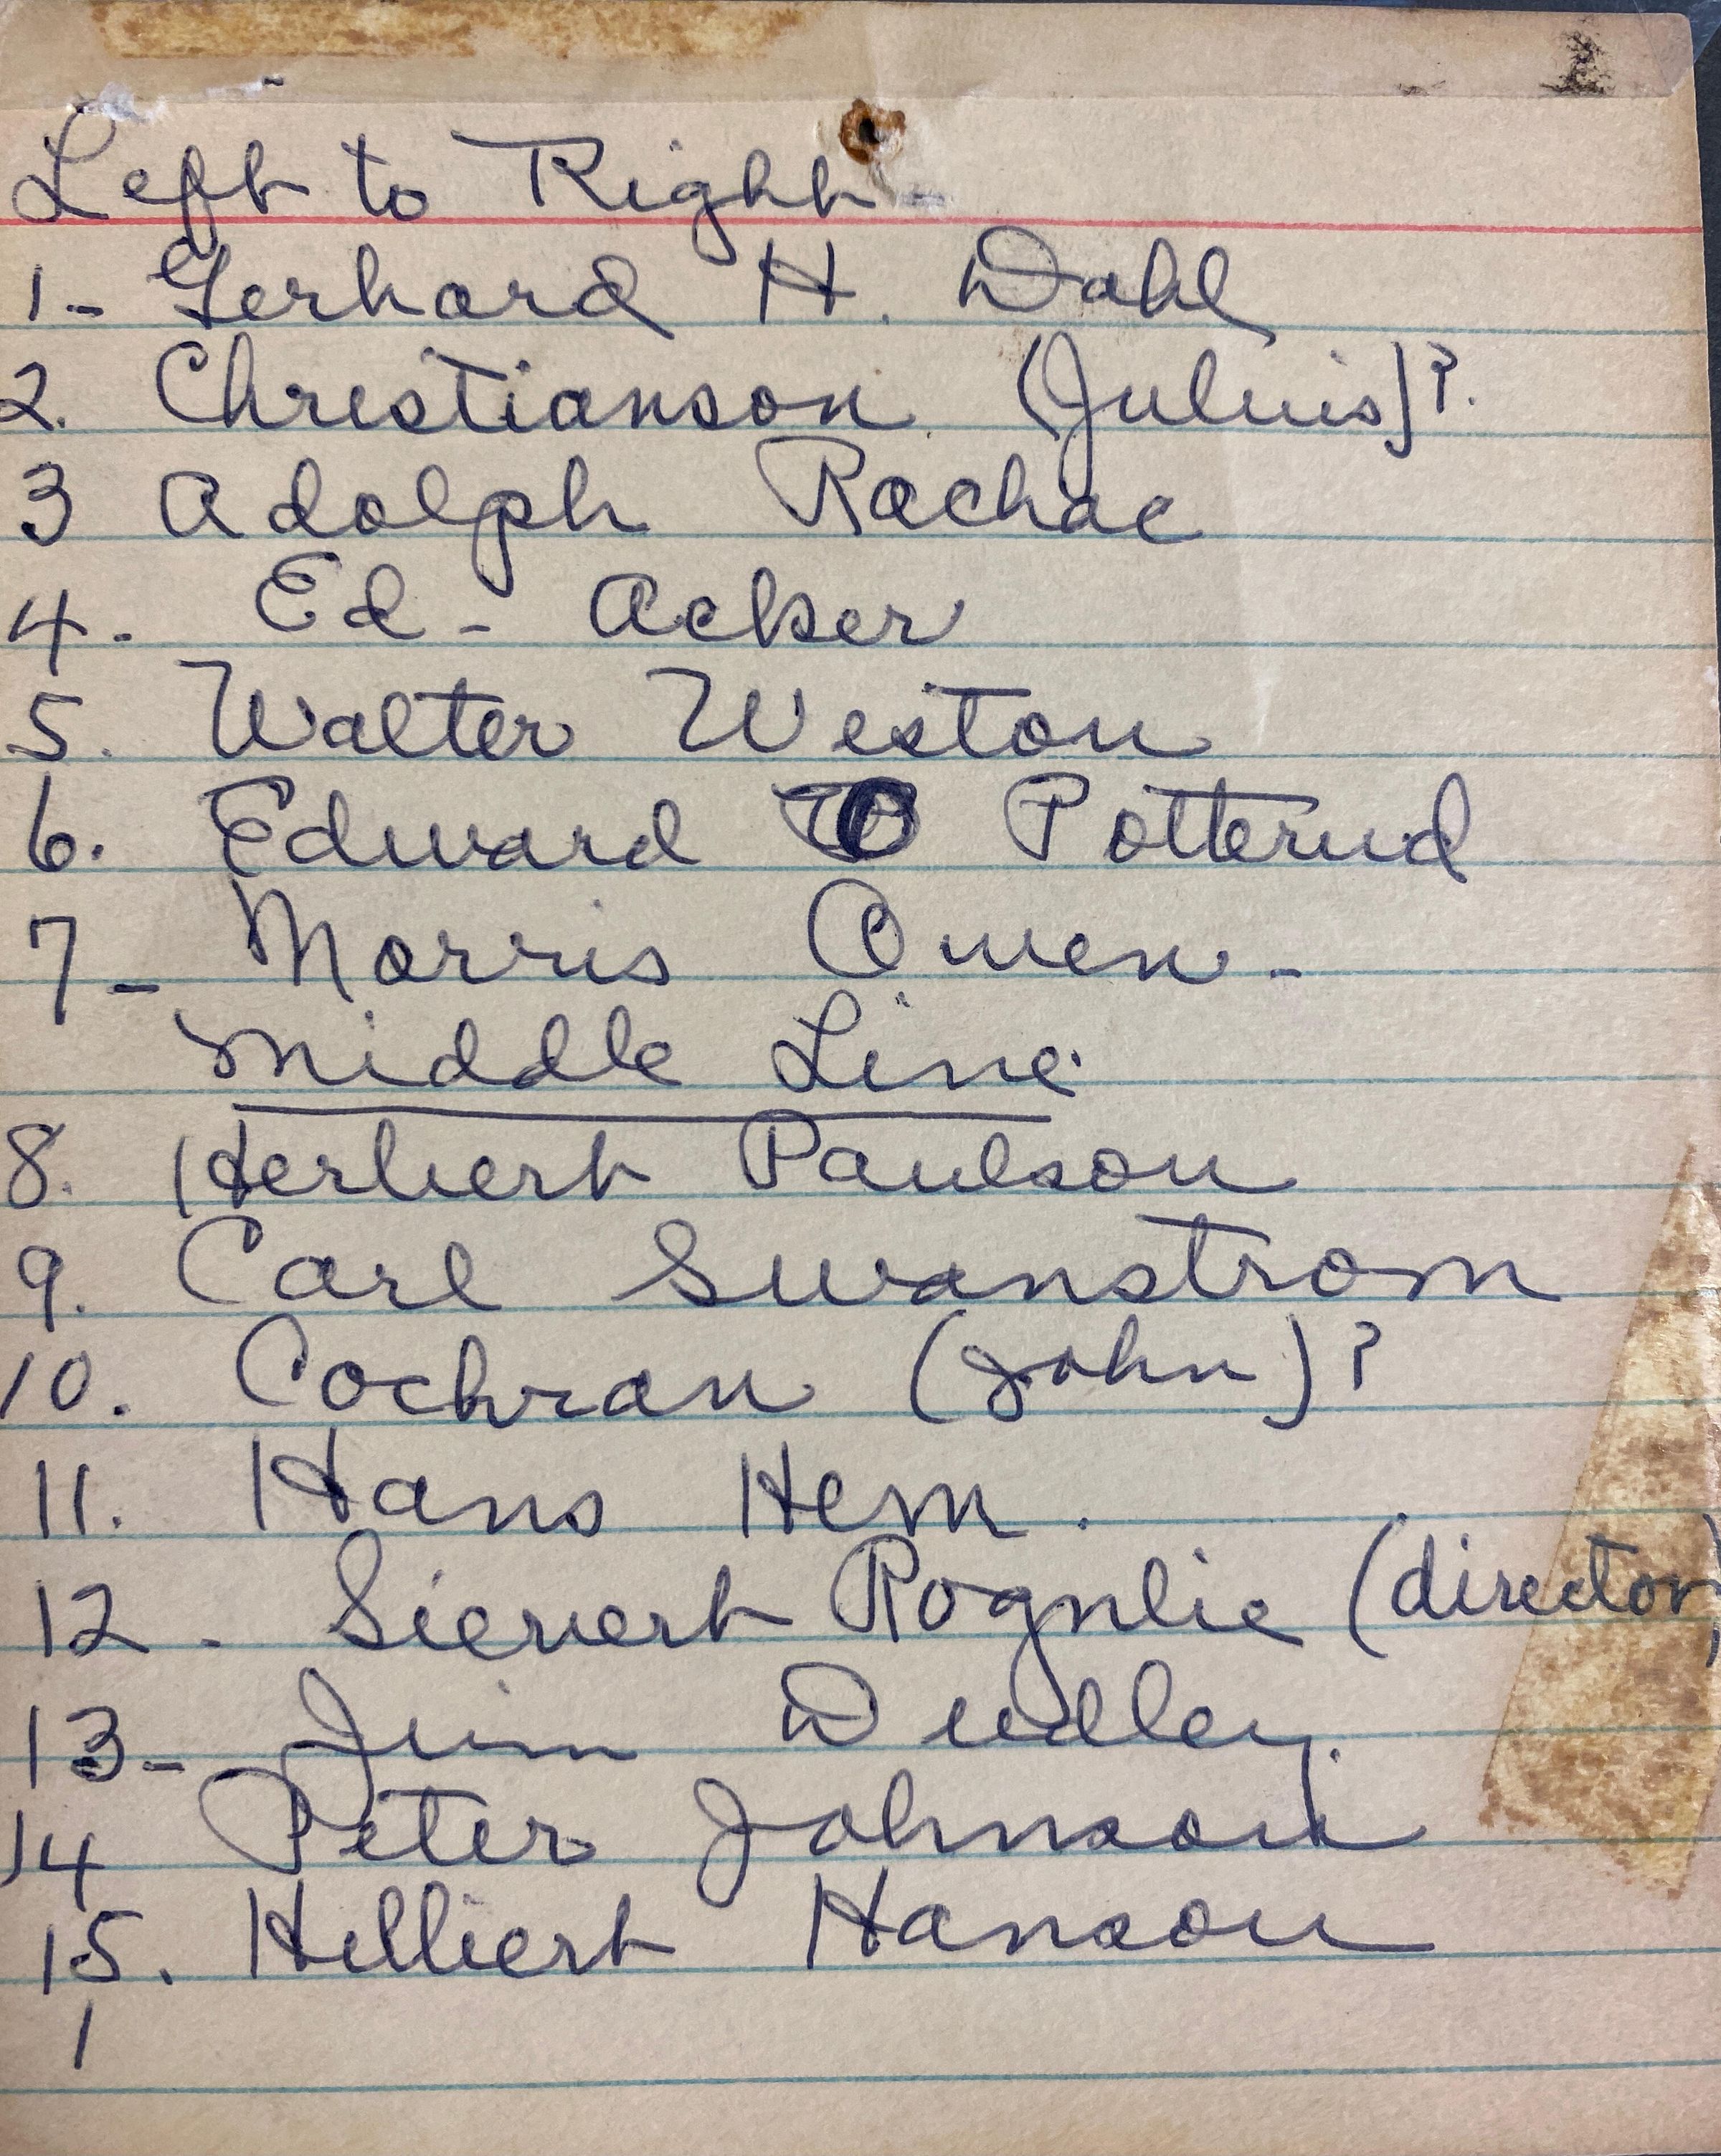 Left to Right -
1- Gerhard H. Dahl
2. Christianson (Juluis)?.
3 Adolph Rachac
4. Ed - Acker
5. Walter Weston
6. Edward O Potterud
7- Morris Owen -
Middle Line.
8. Herbert Paulson
9. Carl Swanstrom
10. Cochran (John)?
11. Hans Hem.
12. Sievert Rognlie (director)
13- Jim Dudley.
14 Peter Johnson
15. Hilbert Hanson
1